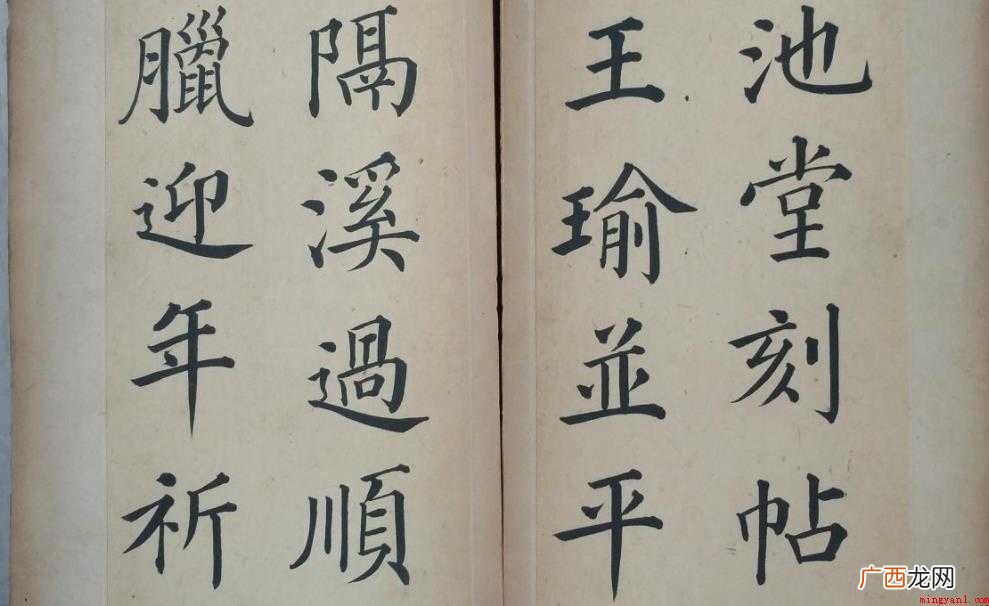 池堂刻帖
王瑜並平
隔溪過順
臘迎年祈
广西龙网
mingyan1.com